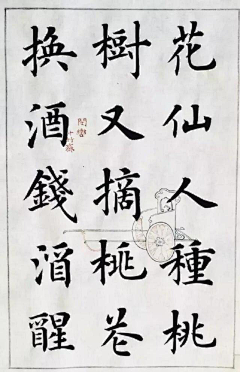 花仙人種桃
樹又摘桃花
換酒錢酒醒